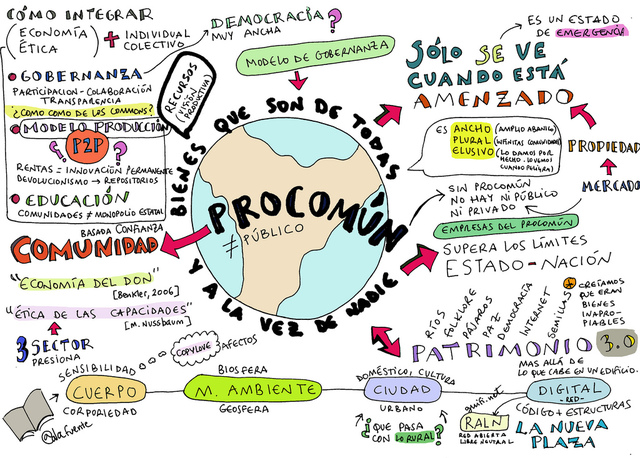 CÓMO INTEGRAR
ECONOMÍA
ÉTICA
+ INDIVIDUAL
COLECTIVO
DEMOCRACIA?
MUY ANCHA
GOBERNANZA
PARTICIPACION - COLABORACIÓN
TRANSPARENCIA
¿COMO COMO DE LOS COMMONS?
MODELO PRODUCCIÓN
? P2P ?
RENTAS = INNOVACIÓN PERMANENTE
DEVOLUCIONISMO → REPOSITORIOS
EDUCACIÓN
COMUNIDADES ≠ MONOPOLIO ESTATAL
RECURSOS
(VISIÓN
PRODUCTIVA)
MODELO DE GOBERNANZA
BIENES QUE SON DE TODAS
Y A LA VEZ DE NADIE
PROCOMÚN
≠ PÚBLICO
SÓLO SE VE
CUANDO ESTÁ
AMENZADO
ES UN ESTADO
DE EMERGENCIA
ES ANCHO (AMPLIO ABANICO)
PLURAL (INFINITAS COMUNIDADES)
ELUSIVO (LO DAMOS POR
HECHO - LO VEMOS
CUANDO PELIGRA)
PROPIEDAD
MERCADO
SIN PROCOMÚN
NO HAY NI PÚBLICO
NI PRIVADO
EMPRESAS DEL PROCOMÚN
SUPERA LOS LÍMITES
ESTADO-NACIÓN
BASADA CONFIANZA
COMUNIDAD
"ECONOMÍA DEL DON"
[Benkler, 2006]
"ÉTICA DE LAS CAPACIDADES"
[M. NUSSBAUM]
3 SECTOR
PRESIONA
RÍOS
FOLKLORE
PÁJAROS
PAZ
DEMOCRACIA
INTERNET
SEMILLAS
+ CREÍAMOS
QUE ERAN
BIENES
INAPRO-
PIABLES
PATRIMONIO 3.0
MAS ALLÁ DE
LO QUE CABE EN UN EDIFICIO.
SENSIBILIDAD
COPYLOVE
3 AFECTOS
CUERPO
CORPORIEDAD
BIOSFERA
M. AMBIENTE
GEOSFERA
DOMÉSTICO, CULTURA
CIUDAD
URBANO
¿QUE PASA
CON LO RURAL?
guifi.net
DIGITAL
-RED-
CÓDIGO + ESTRUCTURAS
RALN
RED ABIERTA
LIBRE NEUTRAL
LA NUEVA
PLAZA